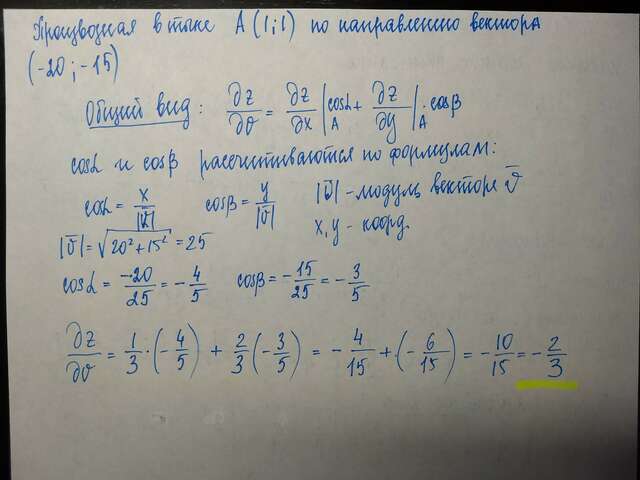 Производная в точке A (1;1) по направлению вектора
(-20 ; -15)
Общий вид: ∂z/∂v = ∂z/∂x |A cosα + ∂z/∂y |A · cosβ
cosα и cosβ рассчитываются по формулам:
cosα = x/|v̄| cosβ = y/|v̄| |v̄| - модуль вектора v̄
|v̄| = √(20² + 15²) = 25 x, y - коорд.
cosα = -20/25 = -4/5 cosβ = -15/25 = -3/5
∂z/∂v = 1/3 · (-4/5) + 2/3 (-3/5) = -4/15 + (-6/15) = -10/15 = -2/3